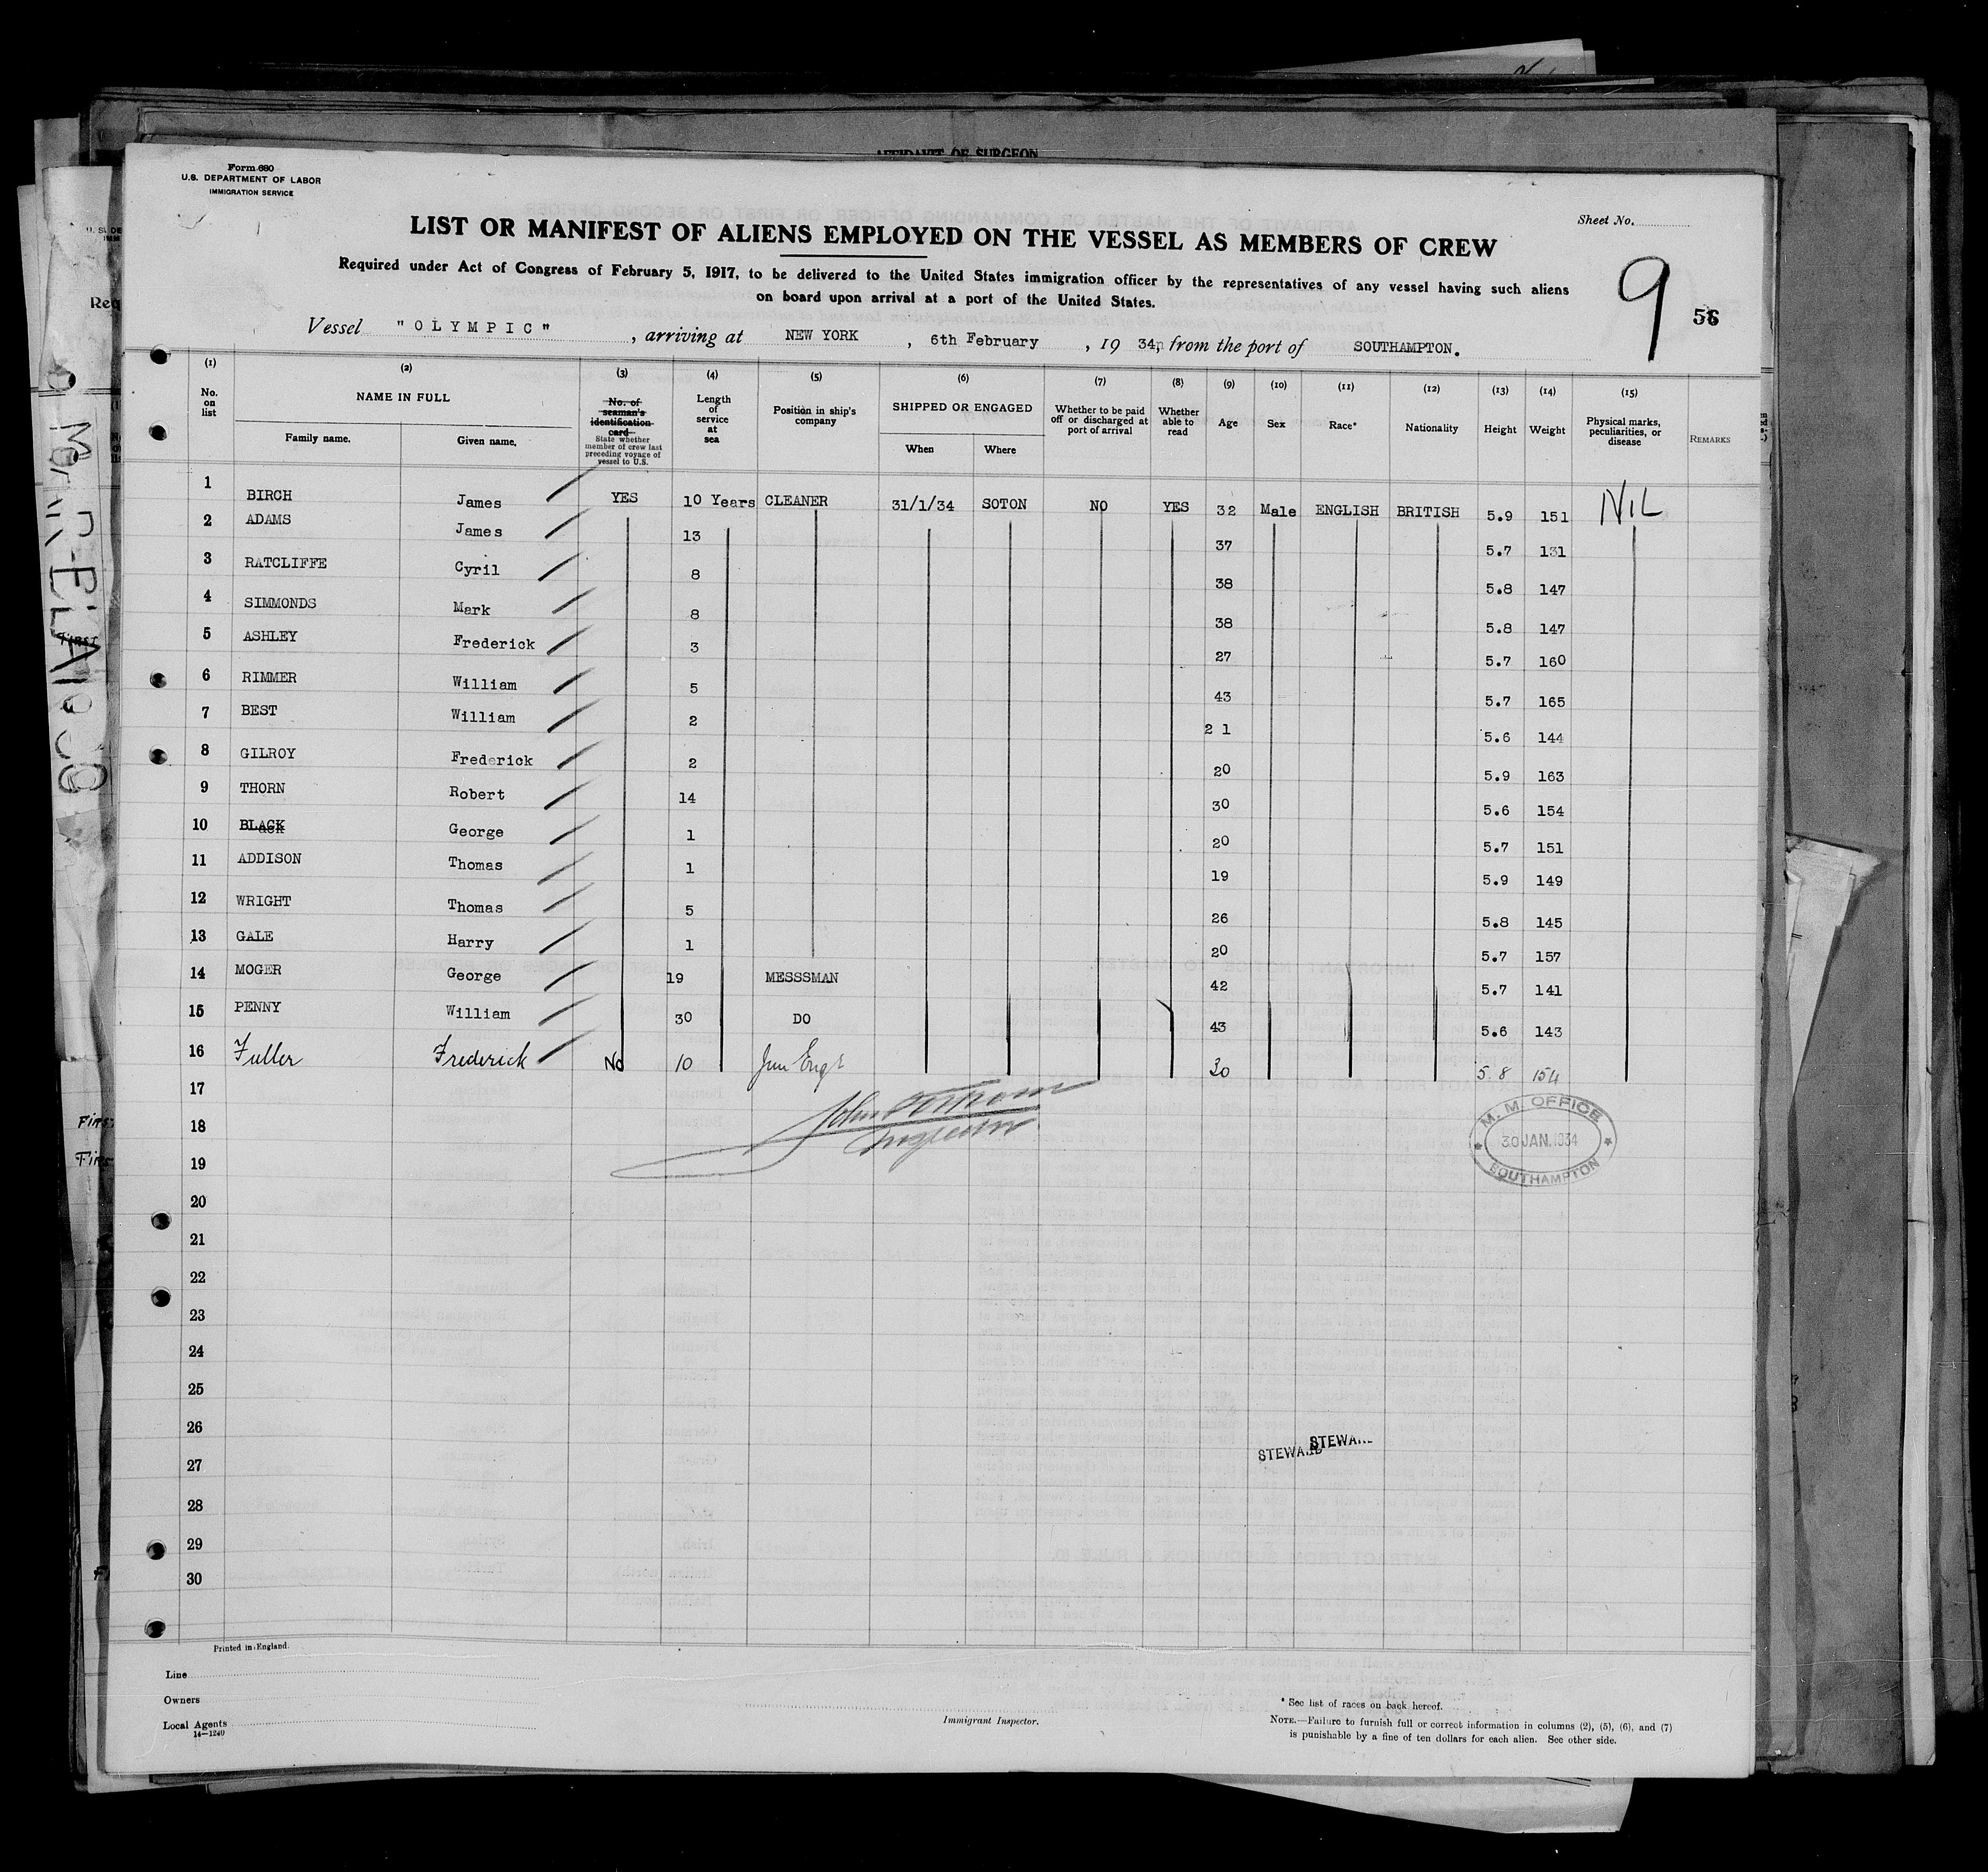 AFFIDAVIT OF SURGEON
Form 680
U.S. DEPARTMENT OF LABOR
IMMIGRATION SERVICE
Sheet No.
LIST OR MANIFEST OF ALIENS EMPLOYED ON THE VESSEL AS MEMBERS OF CREW
Required under Act of Congress of February 5, 1917, to be delivered to the United States immigration officer by the representatives of any vessel having such aliens
on board upon arrival at a port of the United States.
9
Vessel "OLYMPIC", arriving at NEW YORK, 6th February, 19 34, from the port of SOUTHAMPTON.
(1) (2) (3) (4) (5) (6) (7) (8) (9) (10) (11) (12) (13) (14) (15)
No. on list
NAME IN FULL
Family name. Given name.
No. of seaman's identification card
State whether member of crew last preceding voyage of vessel to U.S.
Length of service at sea
Position in ship's company
SHIPPED OR ENGAGED
When Where
Whether to be paid off or discharged at port of arrival
Whether able to read
Age Sex Race* Nationality Height Weight
Physical marks, peculiarities, or disease
REMARKS
1 BIRCH James YES 10 Years CLEANER 31/1/34 SOTON NO YES 32 Male ENGLISH BRITISH 5.9 151 NIL
2 ADAMS James 13 37 5.7 131
3 RATCLIFFE Cyril 8 38 5.8 147
4 SIMMONDS Mark 8 38 5.8 147
5 ASHLEY Frederick 3 27 5.7 160
6 RIMMER William 5 43 5.7 165
7 BEST William 2 21 5.6 144
8 GILROY Frederick 2 20 5.9 163
9 THORN Robert 14 30 5.6 154
10 BLACK George 1 20 5.7 151
11 ADDISON Thomas 1 19 5.9 149
12 WRIGHT Thomas 5 26 5.8 145
13 GALE Harry 1 20 5.7 157
14 MOGER George 19 MESSSMAN 42 5.7 141
15 PENNY William 30 DO 43 5.6 143
16 Fuller Frederick No 10 Jun Engr 30 5.8 154
17
18
M. M. OFFICE
30 JAN. 1934
SOUTHAMPTON
19
20
21
22
23
24
25
26
27
28
29
30
Printed in England.
Line
Owners
Local Agents
14—1240
Immigrant Inspector.
* See list of races on back hereof.
NOTE.—Failure to furnish full or correct information in columns (2), (5), (6), and (7)
is punishable by a fine of ten dollars for each alien. See other side.